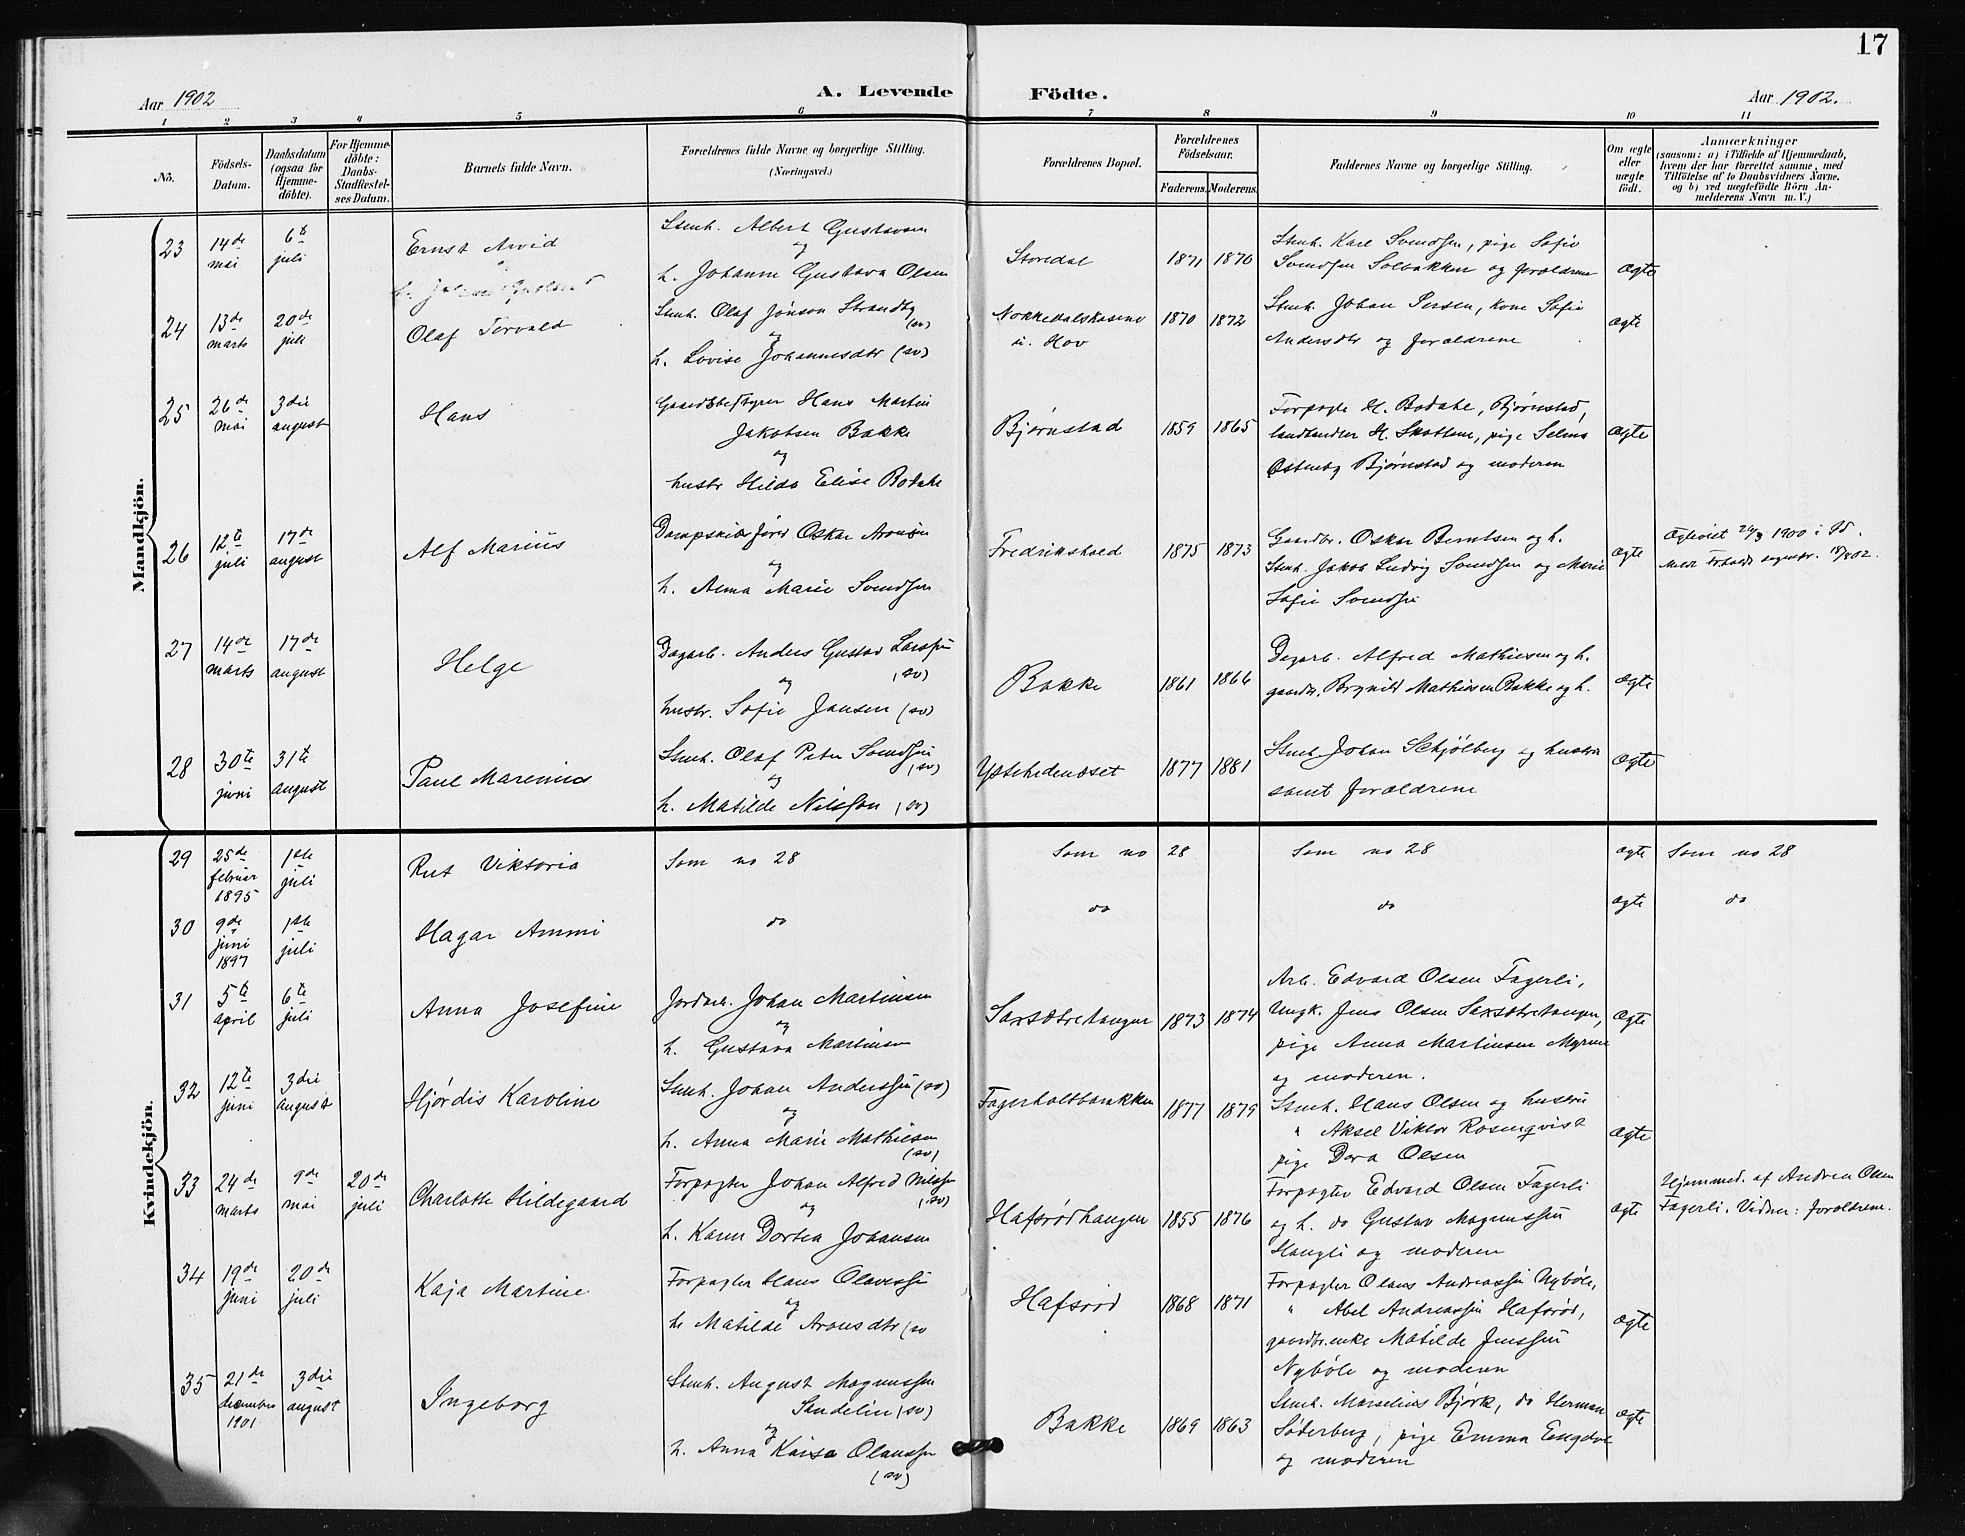 17
Aar 1902
A. Levende Födte.
Aar 1902.
1 2 3 4 5 6 7 8 9 10 11
No.
Födsels-Datum.
Daabsdatum (ogsaa for Hjemme-döbte).
For Hjemme-döbte: Daabs-Stadfæstel-ses Datum.
Barnets fulde Navn.
Forældrenes fulde Navne og borgerlige Stilling.
(Næringsvei.)
Forældrenes Bopæl.
Forældrenes Födselsaar.
Faderens. Moderens.
Faddernes Navne og borgerlige Stilling.
Om ægte eller uægte født.
Anmærkninger
(saasom: a) i Tilfælde af Hjemmedaab,
hvem der har forrettet samme, med
Tilföielse af to Daabsvidners Navne,
og b) ved uægtefödte Börn An-
melderens Navn m. V.)
Mandkjön.
23 14de mai 6te juli Ernst Arvid
Stenh. Albert Gustavsen
og
h. Johanne Gustava Olsen
Storedal 1871 1870
Stenh. Karl Svendsen, pige Sofie
Svendsen Solbakken og forældrene
ægte
24 13de marts 20de juli Olaf Torvald
Stenh. Olaf Jönson Strandby (sv)
og
h. Lovise Johannesdtr (sv)
Nokkedalskasene u. Hov 1870 1872
Stenh. Johan Persen, kone Sofie
Andersdtr og forældrene
ægte
25 26de mai 3die august Hans
Gaardsbestyrer Hans Martin
Jakobsen Bakke
og
hustr Hilda Elise Bodahl
Bjørnstad 1859 1865
Forpagter H. Bodahl, Bjørnstad,
landhandler H. Skotten, pige Selma
Østenby Bjørnstad og moderen
ægte
26 12te juli 17de august Alf Marius
Dampskibsfører Oskar Aronsen
og
h. Anna Marie Svendsen
Fredrikshald 1875 1873
Gaardbr. Oskar Berntsen og h.
Stenh. Jakob Ludvig Svendsen og Marie
Sofie Svendsen
ægte
Ægteviet 1900 i Id.
27 14de marts 17de august Helge
Dagarb. Anders Gustav Larssen (sv)
og
hustr. Sofie Jansen (sv)
Bakke 1861 1866
Dagarb. Alfred Mathiesen og h.
gaardbr. Brynild Mathiesen Bakke og h.
ægte
28 30te juni 31te august Paul Marenius
Stenh. Olaf Peter Svendsen (sv)
og
h. Matilde Nilsson (sv)
Ystehedenæset 1877 1881
Stenh. Johan Schjølberg og hustru
samt forældrene
ægte
Kvindekjön.
29 25de februar 1895 1ste juli Rut Viktoria
Som no 28 Som no 28 Som no 28 ægte Som no 28
30 9de juni 1897 1ste juli Hagar Ammi
do do do ægte do
31 5te april 6te juli Anna Josefine
Jordarb. Johan Martinsen
og
h. Gustava Martinsen
Saxsætrehaugen 1873 1874
Arb. Edvard Olsen Fagerli,
Ungk. Jens Olsen Saxsætrehaugen,
pige Anna Martinsen Myrene
og moderen.
ægte
32 12te juni 3die august Hjørdis Karoline
Stenh. Johan Anderssen (sv)
og
h. Anna Marie Mathiesen (sv)
Fagerholtbrakken 1877 1879
Stenh. Hans Olsen og hustru
" Aksel Viktor Rosenqvist
pige Dora Olsen
ægte
33 24de marts 9de mai 20de juli Charlotte Hildegaard
Forpagter Johan Alfred Nilssen (sv)
og
h. Karen Dortea Johansen
Hafsrødhaugen 1855 1876
Forpagter Edvard Olsen Fagerli
og h. do Gustav Magnussen
Haugli og moderen
ægte
Hjemmed. af Andrea Olsen
Fagerli. Vidner: forældrene.
34 19de juni 20de juli Kaja Martine
Forpagter Hans Olavessen
og
h. Matilde Aronsdtr (sv
Hafsrød 1868 1871
Forpagter Olaus Andreassen Nybøle,
" Abel Andreassen Hafsrød,
gaardbr.enke Matilde Jenssen
Nybøle og moderen
ægte
35 21de december 1901 3die august Ingeborg
Stenh. August Magnussen
Sandelin (sv)
og
h. Anna Kaisa Olaussen
(sv)
Bakke 1869 1863
Stenh. Marselius Bjørk, do Herman
Søderberg, pige Emma Engdal
og moderen
ægte